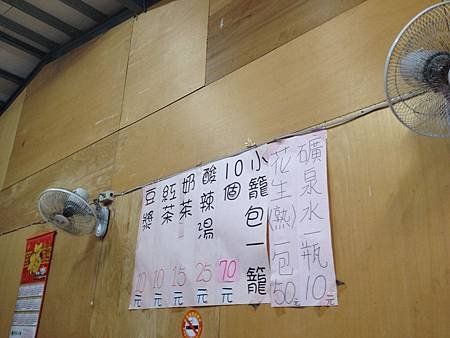 礦泉水一瓶10元
花生(熟)一包50元
小籠包一籠
10個
70元
酸辣湯
25元
奶茶
15元
紅茶
10元
豆漿
10元